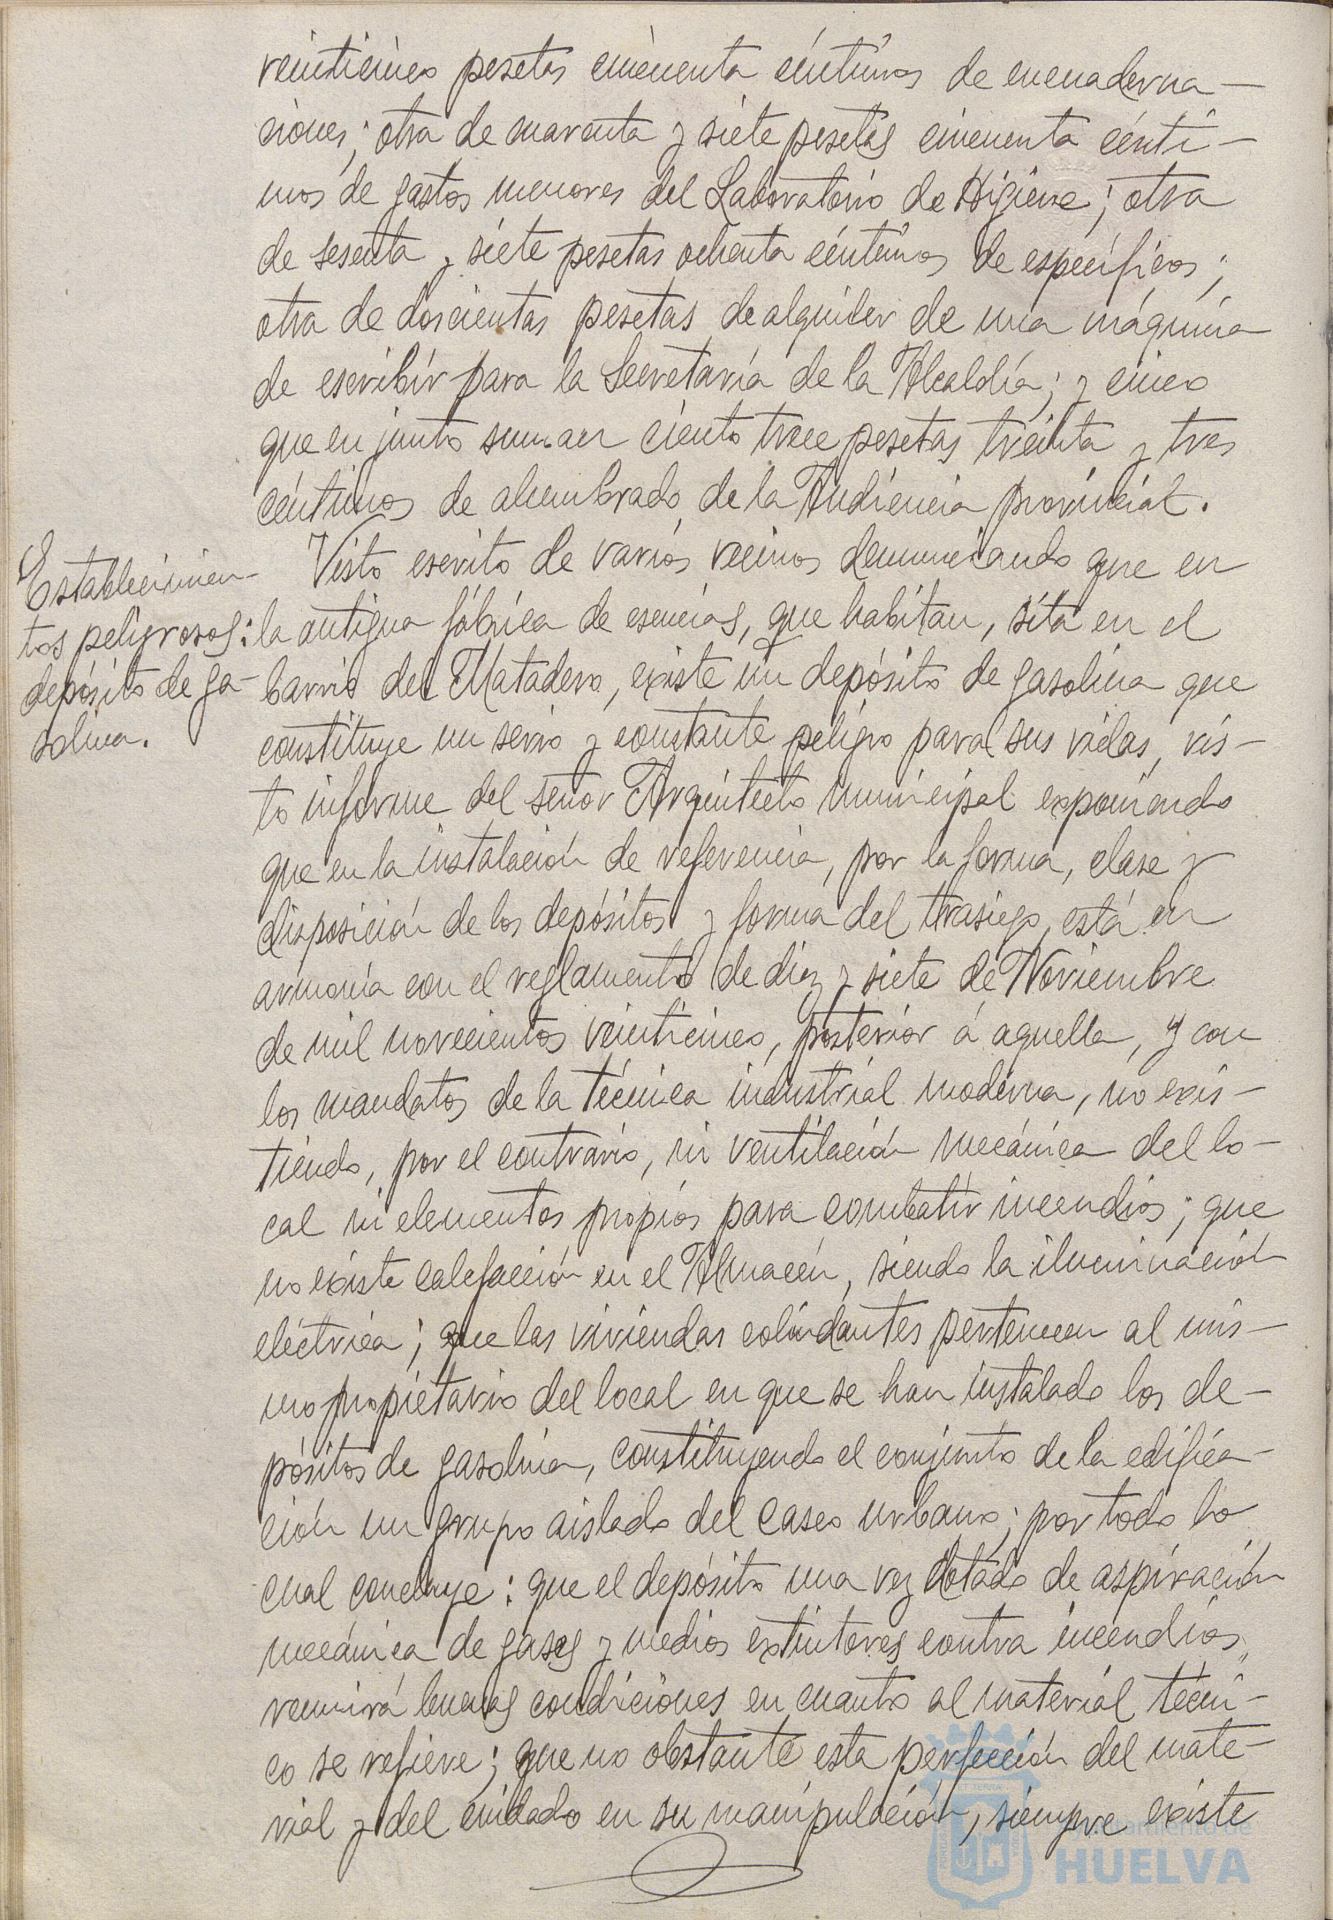 veinticinco pesetas cincuenta céntimos de encuaderna-
ciones; otra de cuarenta y siete pesetas cincuenta cénti-
mos de gastos menores del Laboratorio de Higiene; otra
de sesenta y siete pesetas ochenta céntimos de específicos;
otra de doscientas pesetas de alquiler de una máquina
de escribir para la Secretaría de la Alcaldía; y cinco
que en junto suman ciento trece pesetas treinta y tres
céntimos de alumbrado de la Audiencia provincial.
Establecimien-
tos peligrosos:
depósito de ga-
solina.
Visto escrito de varios vecinos denunciando que en
la antigua fábrica de esencias, que habitan, sita en el
barrio del Matadero, existe un depósito de gasolina que
constituye un serio y constante peligro para sus vidas, vis-
to informe del señor Arquitecto municipal exponiendo
que en la instalación de referencia, por la forma, clase y
disposición de los depósitos y forma del trasiego, está en
armonía con el reglamento de diez y siete de Noviembre
de mil novecientos veinticinco, posterior á aquella, y con
los mandatos de la técnica industrial moderna, no exis-
tiendo, por el contrario, ni ventilación mecánica del lo-
cal ni elementos propios para combatir incendios; que
no existe calefacción en el Almacén, siendo la iluminación
eléctrica; que las viviendas colindantes pertenecen al mis-
mo propietario del local en que se han instalado los de-
pósitos de gasolina, constituyendo el conjunto de la edifica-
ción un grupo aislado del casco urbano; por todo lo
cual concluye: que el depósito una vez dotado de aspiración
mecánica de gases y medios extintores contra incendios,
reunirá buenas condiciones en cuanto al material técni-
co se refiere; que no obstante esta perfección del mate-
rial y del cuidado en su manipulación, siempre existe
Ayuntamiento de
HUELVA